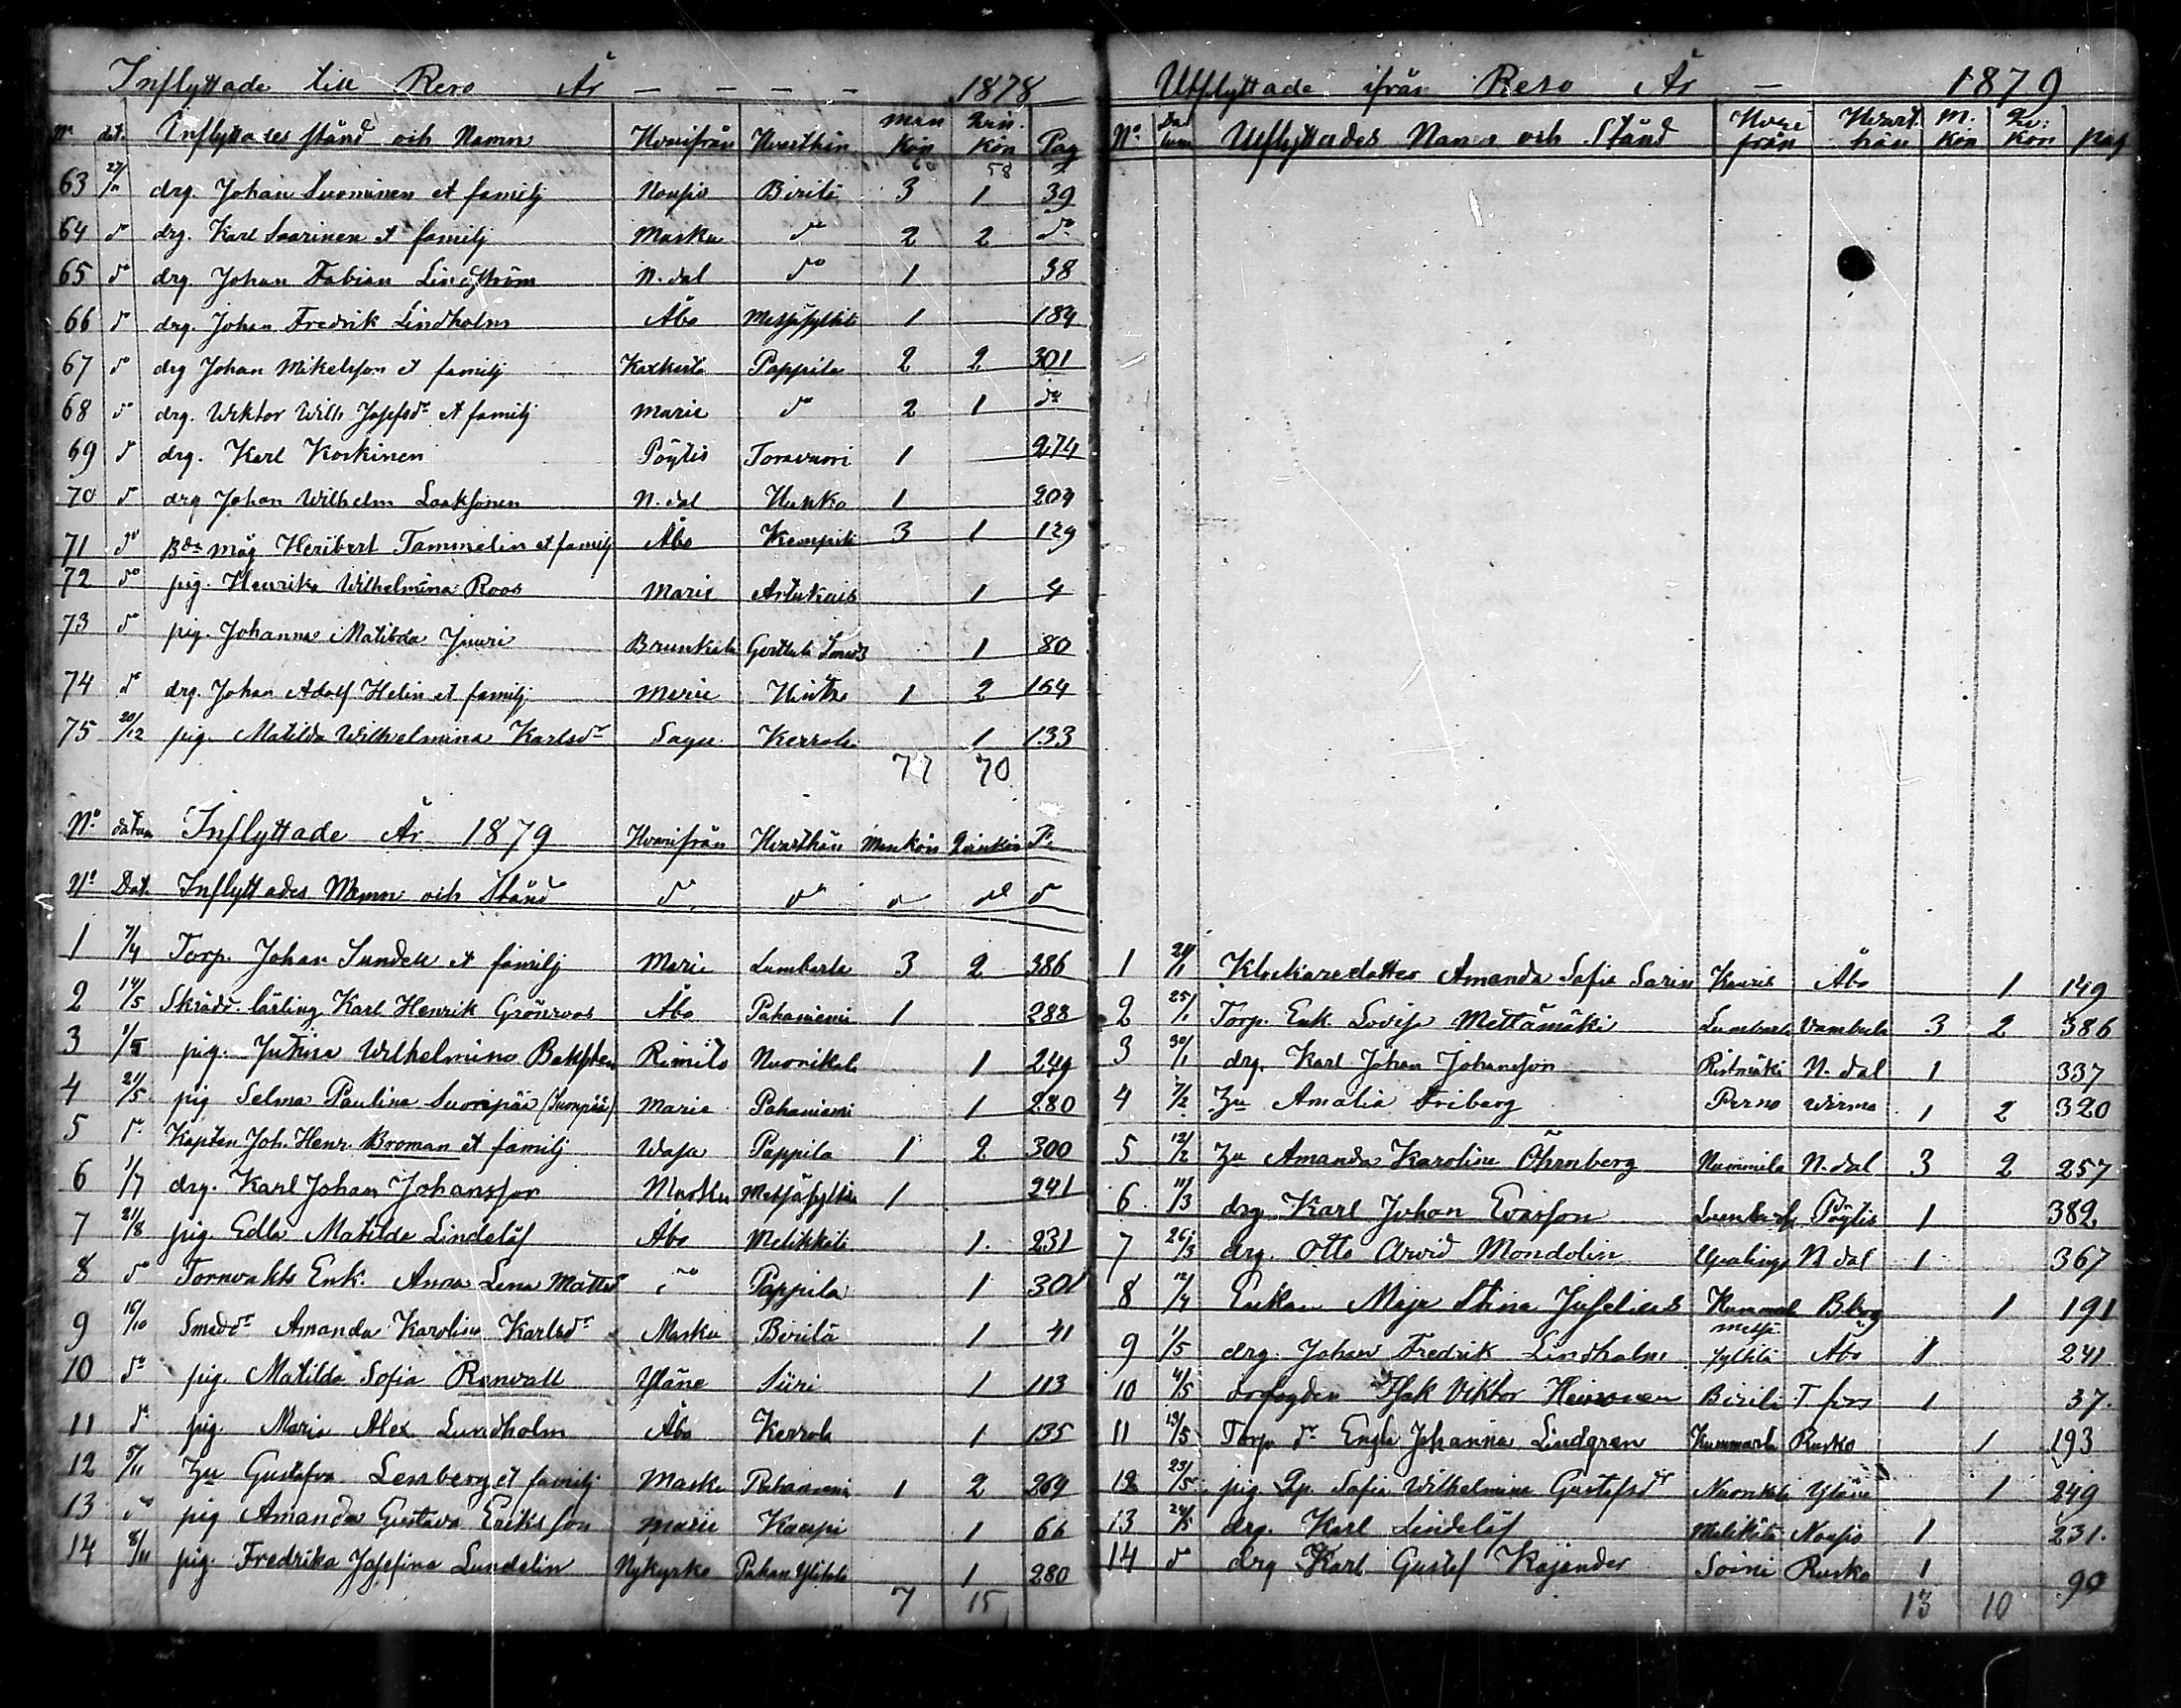 Inflyttade till Reso År - - - - 1878
No dat. Inflyttades stånd och Namn Hvarifrån Hvarthän Man Kön Qvin. Kön Pag
60 58
63 27/11 drg. Johan Suominen et familj Nousis Birilä 3 1 39
64 do drg. Karl Saarinen et familj Masku do 2 2 do
65 do drg Johan Fabian Lindström N. dal do 1 38
66 do drg. Johan Fredrik Lindholm Åbo 1 184
67 do drg Johan Mikelsson et familj Kaxkerta Pappila 2 2 301
68 do drg. Wiktor Wilh. et familj Marie do 2 1 do
69 do drg. Karl Koskinen Pöytis Toravuori 1 274
70 do drg Johan Wilhelm Laaksonen N. dal Hunko 1 204
71 do Bde måg Heribert Tammelin et familj Åbo 3 1 129
72 do pig. Henrika Wilhelmina Roos Marie Artukais 1 4
73 do pig. Johanna Matilda Juuri Brunkala 1 80
74 do drg. Johan Adolf Helin et familj Marie 1 2 154
75 20/12 pig. Matilda Wilhelmina Karlsdr Sagu Kerrola 1 133
77 70
No datum Inflyttade År 1879 Hvarifrån Hvarthän Mankön Qvinkön P.
No Dat. Inflyttades Namn och Stånd do do do do do
1 7/4 Torp. Johan Sundell et familj Marie Lumberla 3 2 386
2 14/5 Skrädd. lärling Karl Henrik Grönroos Åbo Pahaniemi 1 288
3 pig. Wilhelmina Rimito Nuorikkala 1 249
4 21/5 pig Selma Paulina Suorsapää Marie Pahaniemi 1 280
5 do Kapten Joh. Henr. Broman et familj Wasa Pappila 1 2 300
6 1/7 drg. Karl Johan Johansson Masku 1 241
7 21/8 pig. Edla Matilda Lindelöf Åbo 1 231
8 do Tornvakts Enk. Anna Lena Mattsdr do Pappila 1 301
9 16/10 Smeddr Amanda Karolina Karlsdr Masku Birilä 1 41
10 do pig. Matilda Sofia Renvall Yläne Siiri 1 113
11 do pig. Maria Alex. Lundholm Åbo Kerrola 1 135
12 5/11 Gustafva Lenberg et familj Masku Pahaniemi 1 2 269
13 do pig Amanda Gustava Eriksson Marie Kaupi 1 66
14 8/11 pig. Fredrika Josefina Lundelin Nykyrko 1 280
7 15
Utflyttade ifrån Reso År - 1879
No. Datum Utflyttades Namn och Stånd Hvarifrån Hvarthän M. Kön Qv: Kön pag
1 21/1 Klockaredotter Amanda Sofia Sarin Kauris Åbo 1 149
2 25/1 Torp. Enk. Lovisa Mettämäki Lumberla Vambula 3 2 386
3 30/1 drg. Karl Johan Johansson Ristimäki N. dal 1 337
4 7/2 Amalia Friberg Perno Wirmo 1 2 320
5 12/2 Amanda Karolina Öhrnberg Nummila N. dal 3 2 257
6 11/3 drg. Karl Johan Evasson Pöytis 1 382
7 26/3 drg. Otto Arvid Mondolin N. dal 1 367
8 12/4 Enkan Maja Stina Juselius 1 191
9 1/5 drg. Johan Fredrik Lindholm Åbo 1 241
10 4/5 Isak Viktor Heinonen Birilä T. fors 1 37.
11 13/5 Torp dr Enga Johanna Lindgren Kummarla Rusko 1 193
12 23/5 pig Sofia Wilhelmina Gustafsdr Nuorikkala Yläne 1 249
13 24/5 drg. Karl Lindelöf Nousis 1 231.
14 do drg Karl Gustaf Kajander Soini Rusko 1 90
13 10